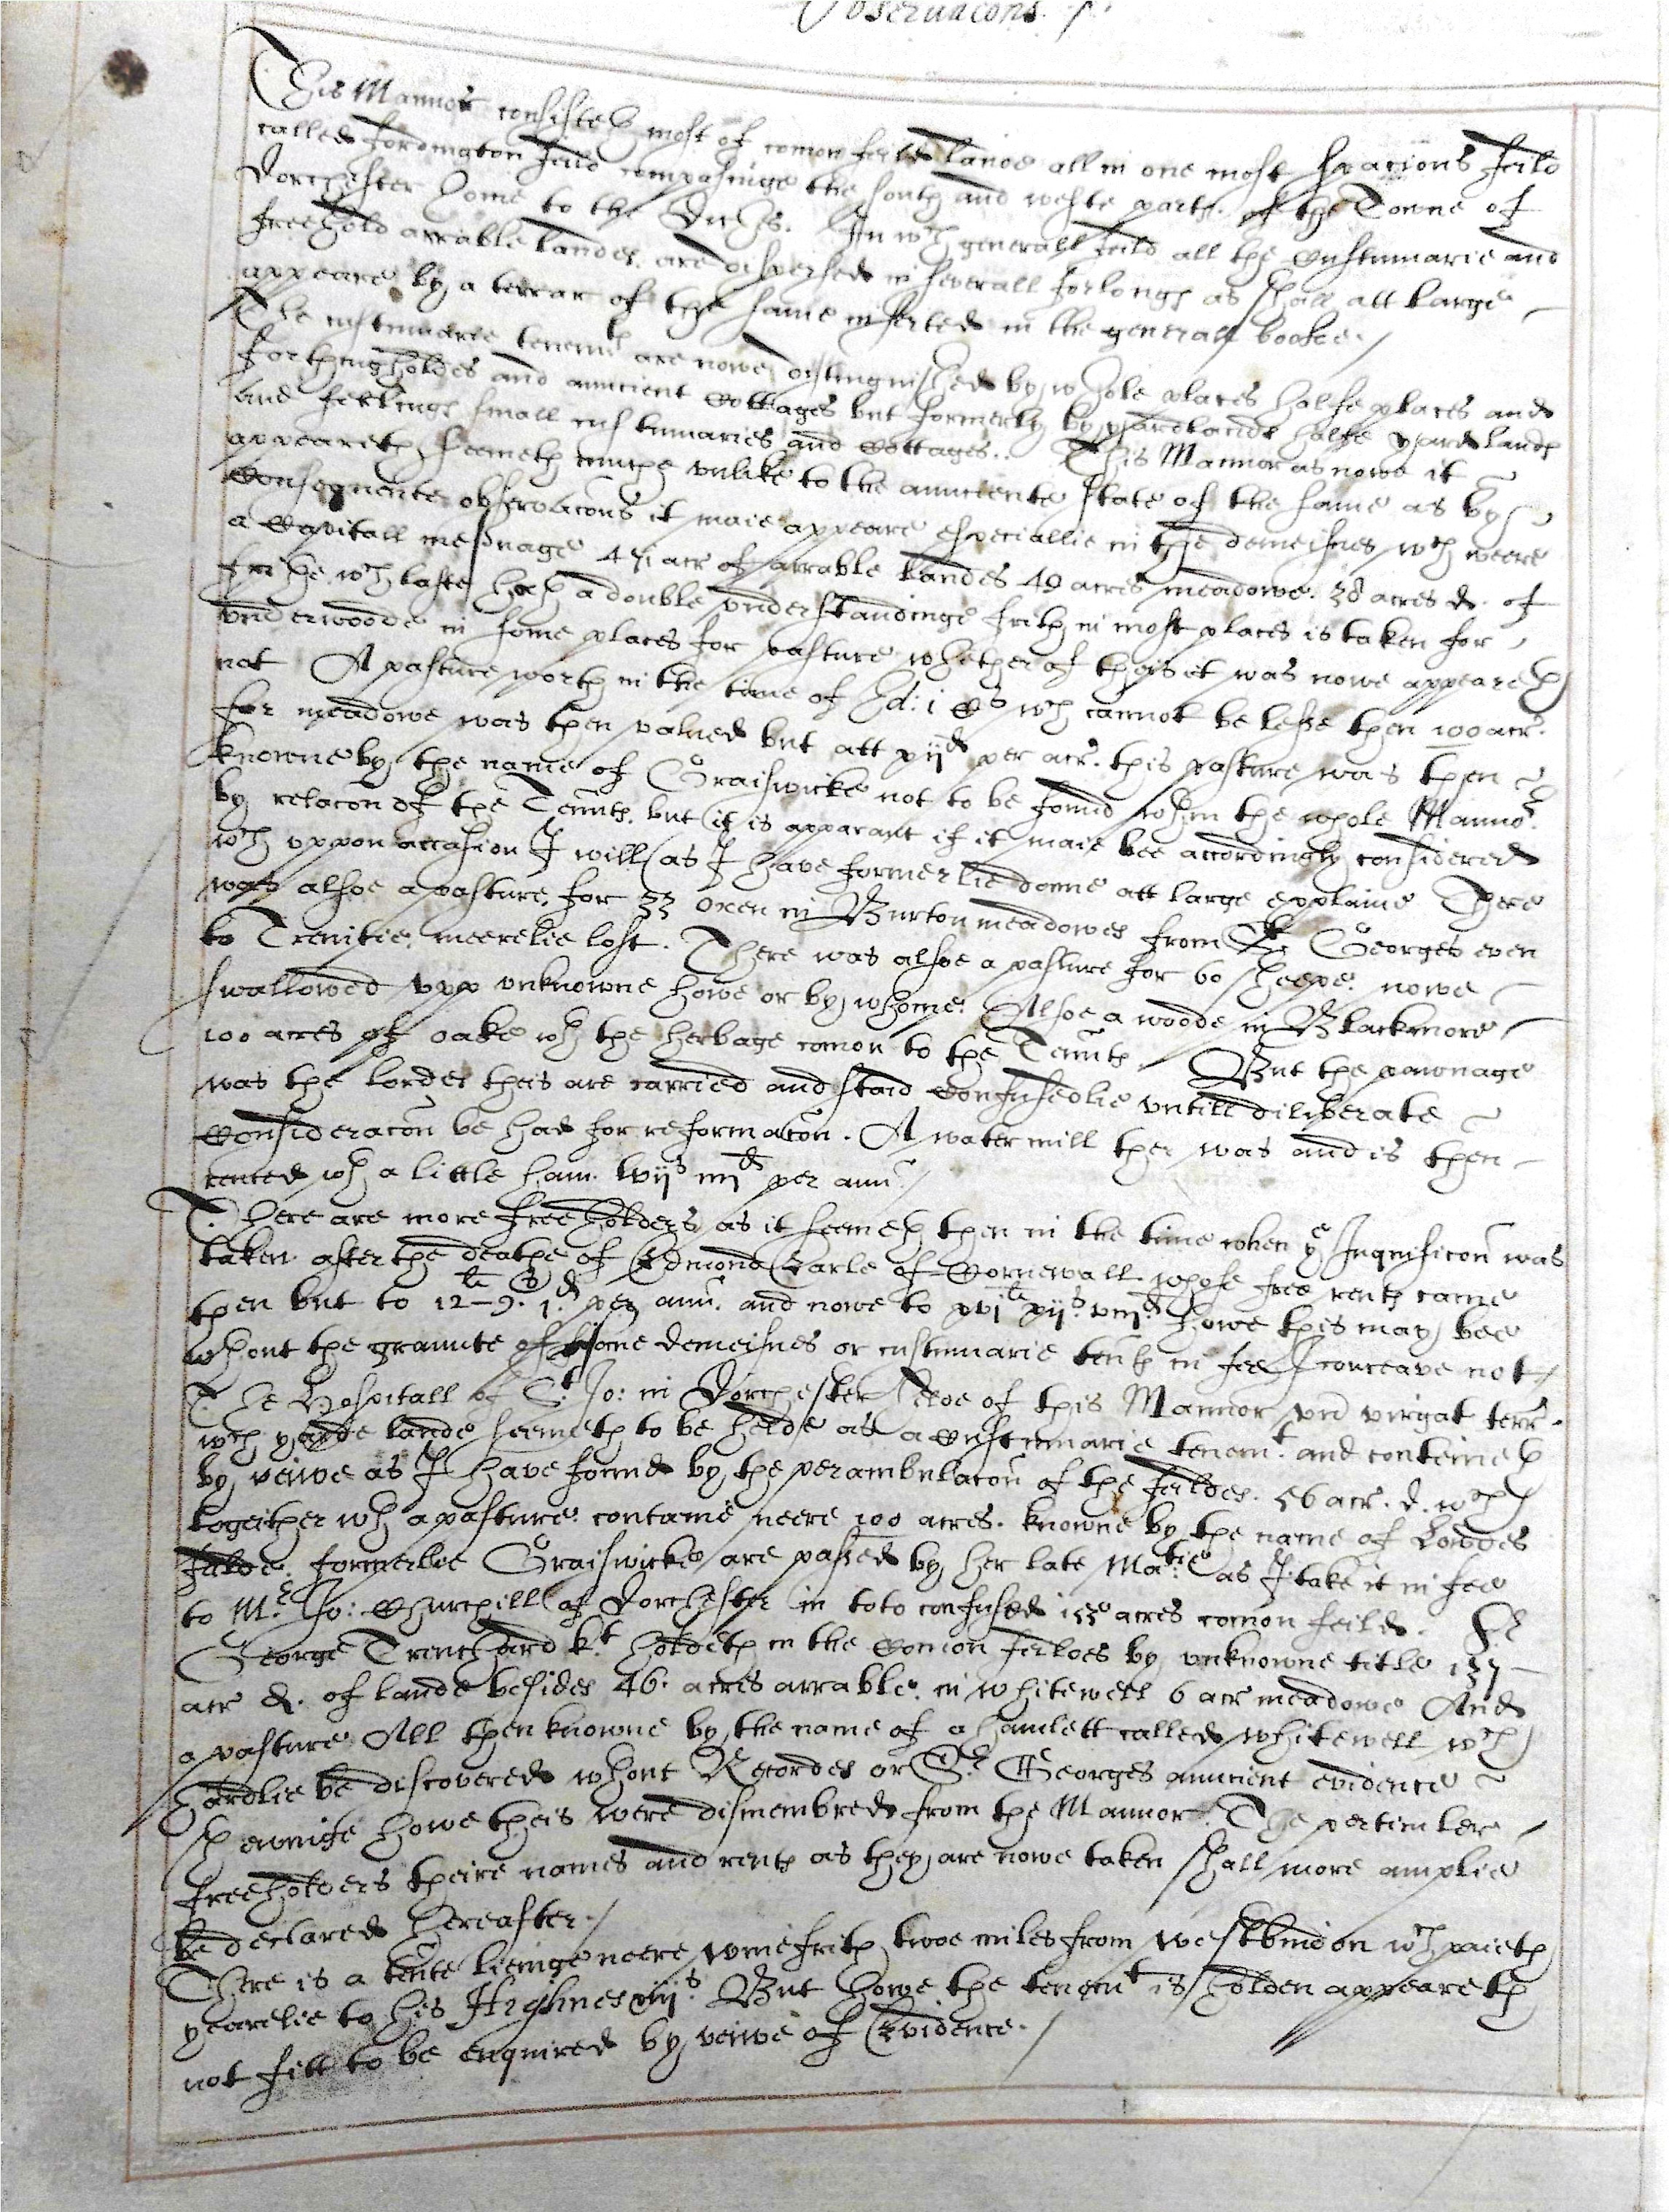 Observacons /.
This Mannor consisteth most of comon feild lande all in one most spacious feild
called Fordington feild compasinge the south and weste parts of the Towne of
Dorchester home to the Ditches. In wch generall feild all the Custumarie and
freehold arrable landes are dispersed in severall forlongs as shall att large
appeare by a terrar of the same inserted in the generall booke./
The custumarie tenemts are nowe distinguished by whole places halfe places and
forthingholdes and auncient Cottages but formerly by yardlands halfe yard lands
and ferlings small custumaries and Cottages. This Mannor as nowe it
appeareth seemeth muche unlike to the aunciente state of the same as by
Consequente observacons it maie appeare especiallie in the demeisnes wch weere
a Capitall messuage 471 acr of arrable landes 49 acres meadowe. 38 acres d. of
frithe wch laste hath a double understandinge frith in most places is taken for
underwoode in some places for pasture whether of theis it was nowe appeareth
not A pasture worth in the time of Ed: 1 Cs wch cannot be lesse then 100 acr.
for meadowe was then valued but att xijd per acr. this pasture was then
knowne by the name of Graiswicke not to be found whin the whole Mannor.
by relacon of the Tennts. but it is apparant if it maie bee accordingly considered
wch uppon occasion I will (as I have formerlie donne att large explaine There
was alsoe a pasture for 33 oxen in Burton meadowes from St Georges even
to Trenitie meerelie lost. There was alsoe a pasture for 60 sheepe nowe
swallowed upp unknowne howe or by whome. Alsoe a woode in Blackmore
100 acres of oake wth the herbage comon to the Tennts. But the pawnage
was the lordes theis are carried and stand Confusedlie untill diliberate
Consideracon be had for reformacon. A water mill ther was and is then
rented wth a little ham. lvijs iiijd per ann./
There are more freeholders as it seemeth then in the time when ye Inquisicon was
taken after the deathe of Edmond Earle of Cornewall whose free rents came
then but to 12li–9s. 1d. per ann. and nowe to xvjli xijs. viijd. howe this may bee
whout the graunte of some demeisnes or custumarie tents in fee I conceave not /
The Hospitall of St. Jo: in Dorchester helde of this Mannor un virgat terr.
wch yarde lande seemeth to be helde as a Custumarie tenemt. and conteineth
by veiwe as I have found by the perambulacon of the feildes. 56 acr. d. wch
together wth a pasture. containe neere 100 acres. knowne by the name of Lowdes
feilde. formerlie Graiswicke are passed by her late Matie: as I take it in fee
to Mr. Jo: Churchill of Dorchester in toto confused 153 acres comon feild. Sr
George Trenchard kt. holdeth in the Comon feildes by unknowne title 137
acr d. of lande besides 46. acres arrable. in Whitewell 6 acr meadowe And
a pasture All then knowne by the name of a hamlett called Whitewell wch
hardlie be discovered whout Recordes or Sr Georges auncient evidence
howe theis were dismembred from the Mannor. The perticuler
freeholders theire names and rents as they are nowe taken shall more amplie
be declared hereafter./
There is a tente lieinge neere winefrith twoe miles from westbindon wch paieth
yearelie to his Highnes iijs. But howe the tenemt is holden appeareth
not fitt to be enquired by veiwe of Evidence./